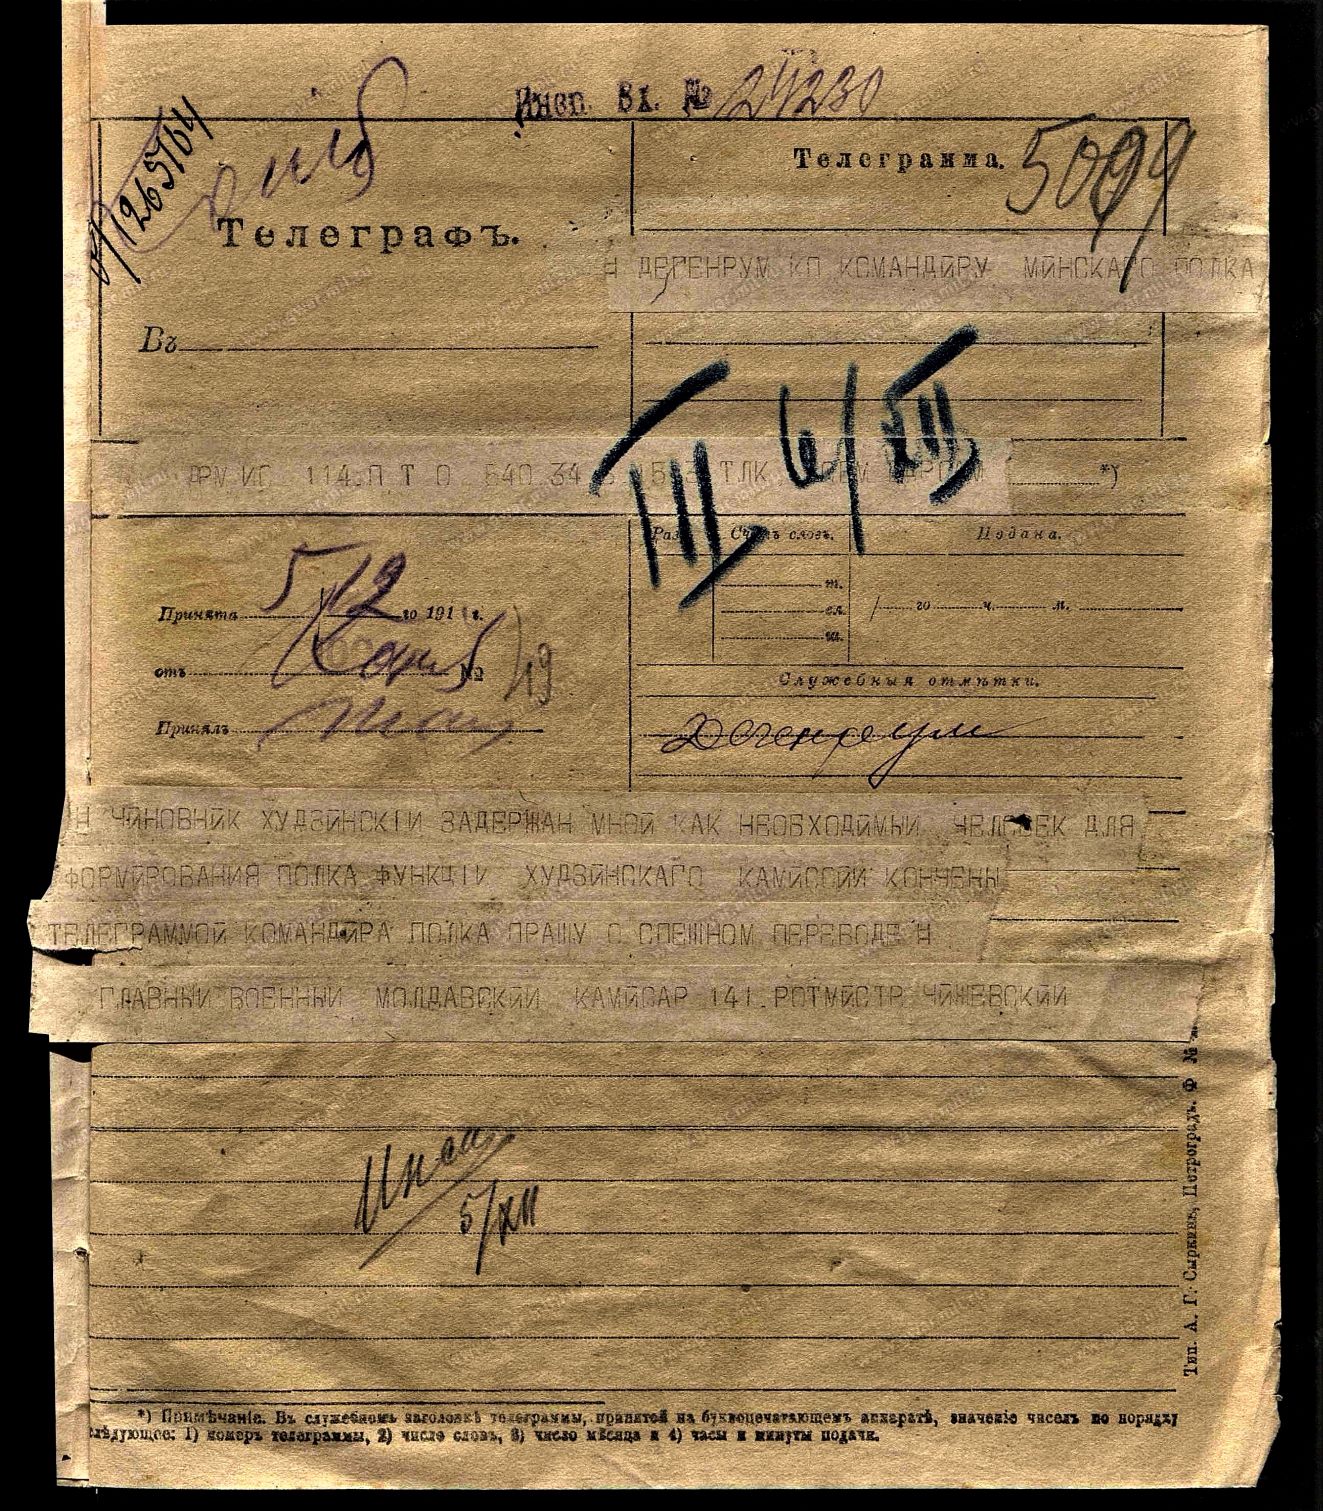 Инсп. Вх. № 24230
Телеграмма. 5099
Телеграфъ.
Н ДЕГЕНРУМ КП КОМАНДИРУ МИНСКАГО ПОЛКА
Въ
114 П Т О 640 34 ТЛК *)
III 6/XII
Счетъ словъ. Подана.
т.
сл. го ч. м.
ш.
Принята 5/12 го 191 г.
отъ №
19
Служебныя отмѣтки.
Принялъ
Дегенрум
Н ЧИНОВНИК ХУДЗИНСКIИ ЗАДЕРЖАН МНОЙ КАК НЕОБХОДИМЫЙ ЧЕЛОВЕК ДЛЯ
ФОРМИРОВАНИЯ ПОЛКА ФУНКЦIИ ХУДЗИНСКАГО КАМИССИИ КОНЧЕНЫ
ТЕЛЕГРАММОЙ КОМАНДИРА ПОЛКА ПРАШУ О СПЕШНОМ ПЕРЕВОДЕ Н
ГЛАВНЫЙ ВОЕННЫЙ МОЛДАВСКИЙ КАМИСАР 141 РОТМИСТР ЧИЖЕВСКИЙ
5/XII
Тип. А. Г. Сыркинъ, Петроградъ. Ф №
*) Примѣчанiе. Въ служебномъ заголовкѣ телеграммы, принятой на буквопечатающемъ аппаратѣ, значенiе чиселъ по порядку
слѣдующее: 1) номеръ телеграммы, 2) число словъ, 3) число мѣсяца и 4) часы и минуты подачи.